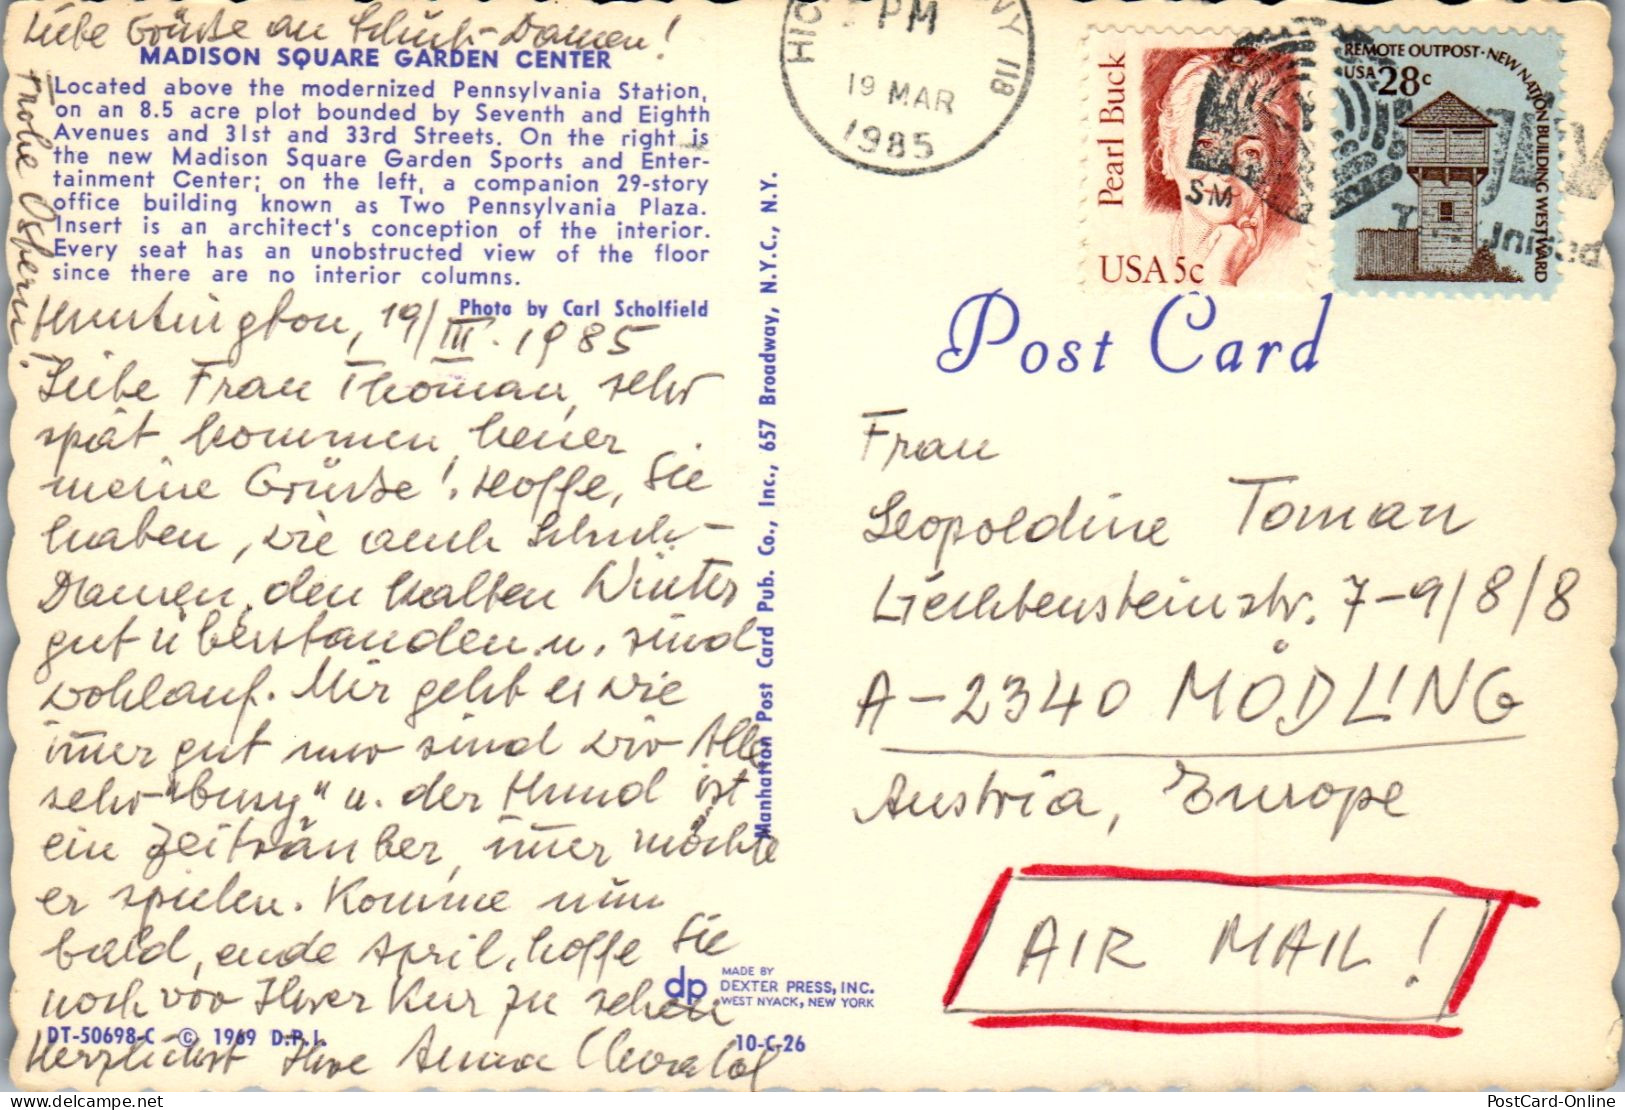 Liebe Grüße an Schuh-Damen!
Frohe Ostern!
MADISON SQUARE GARDEN CENTER
Located above the modernized Pennsylvania Station,
on an 8.5 acre plot bounded by Seventh and Eighth
Avenues and 31st and 33rd Streets. On the right is
the new Madison Square Garden Sports and Enter-
tainment Center; on the left, a companion 29-story
office building known as Two Pennsylvania Plaza.
Insert is an architect's conception of the interior.
Every seat has an unobstructed view of the floor
since there are no interior columns.
Photo by Carl Scholfield
Huntington, 19/III. 1985
Liebe Frau Thoman, sehr
spät kommen heuer
meine Grüße! Hoffe, Sie
haben, wie auch Schuh-
Damen, den kalten Winter
gut überstanden u. sind
wohlauf. Mir geht es wie
immer gut nur sind wir Alle
sehr "busy" u. der Hund ist
ein Zeiträuber, immer möchte
er spielen. Komme nun
bald, ende April, hoffe Sie
noch vor Ihrer Kur zu sehen
Herzlichst Ihre Anna
DT-50698-C © 1969 D.P.I.
10-C-26
dp MADE BY
DEXTER PRESS, INC.
WEST NYACK, NEW YORK
Manhattan Post Card Pub. Co., Inc., 657 Broadway, N.Y.C., N.Y.
NY 118
PM
19 MAR
1985
Pearl Buck
USA 5c
REMOTE OUTPOST · NEW NATION BUILDING WESTWARD
USA 28c
Post Card
Frau
Leopoldine Toman
Liechtensteinstr. 7-9/8/8
A-2340 MÖDLING
Austria, Europe
AIR MAIL!
PostCard-Online
delcampe.net